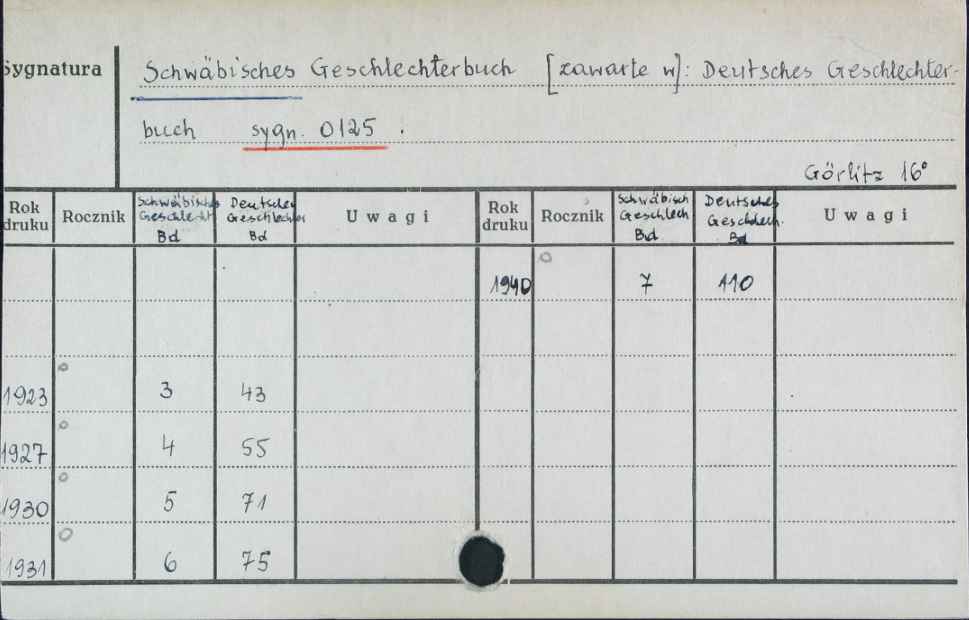 Sygnatura
Schwäbisches Geschlechterbuch [zawarte w]: Deutsches Geschlechter-
buch sygn. 0125 .
Görlitz 16°
Rok druku Rocznik Schwäbisches Geschlecht Bd Deutsches Geschlechter Bd Uwagi Rok druku Rocznik Schwäbisch Geschlech Bd. Deutsches Geschlech. Bd Uwagi
1940 7 110
1923 3 43
1927 4 55
1930 5 71
1931 6 75